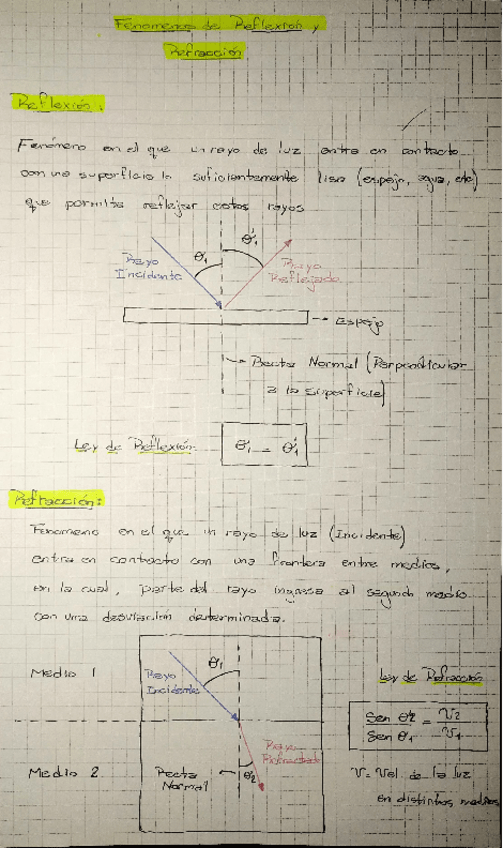 Fenomenos de Reflexión y
Refracción.
Reflexión:
Fenómeno en el que un rayo de luz entra en contacto
con una superficie lo suficientemente lisa (espejo, agua, etc)
que permita reflejar estos rayos
θ₁
θ'₁
Rayo
Incidente
Rayo
Reflejado
→ Espejo
→ Recta Normal (Perpendicular
a la superficie)
Ley de Reflexión
θ₁ = θ'₁
Refracción:
Fenomeno en el que un rayo de luz (Incidente)
entra en contacto con una frontera entre medios,
en la cual, parte del rayo ingresa al segundo medio
con una desviación determinada.
Medio 1
Rayo
Incidente
θ₁
Ley de Refracción
Sen θ2 / Sen θ1 = V2 / V1
Rayo
Refractado
Medio 2
Recta
Normal
θ2
V = Vel. de la luz
en distintos medios